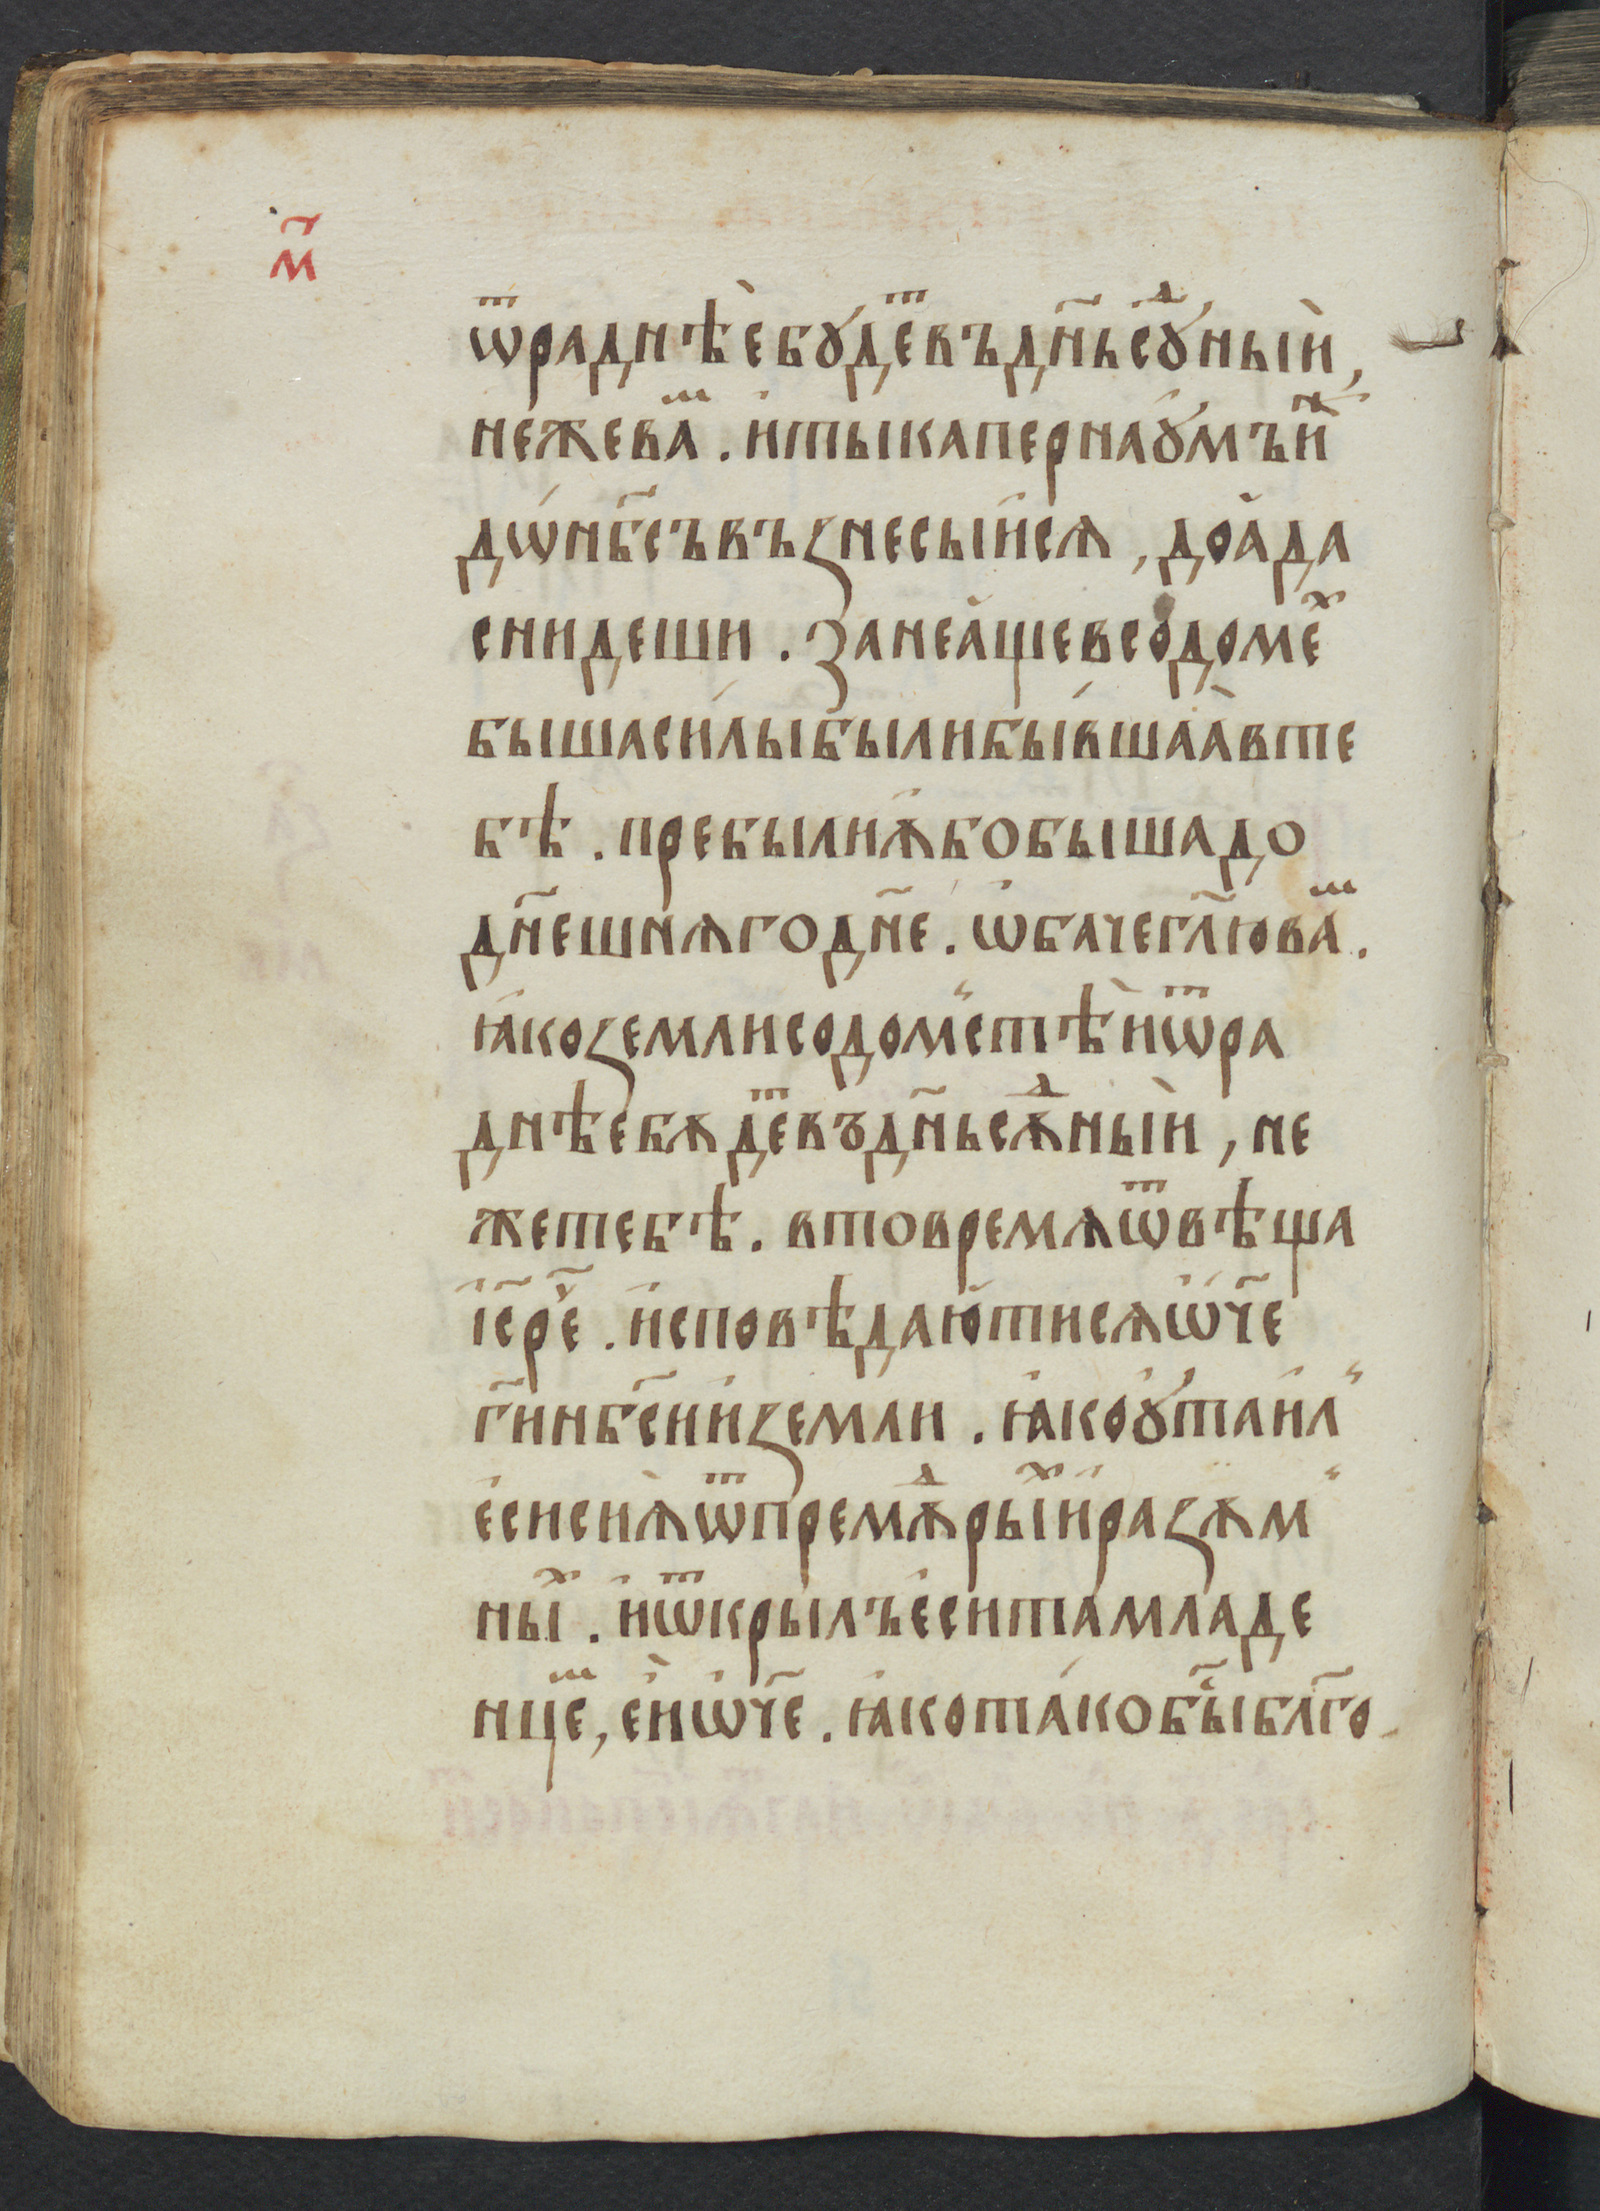 м҃
ѿраднѣ̀ебꙋ́деⷮвъдн҃ьсꙋⷣныѝ,
не́жеваⷨ. и҆тыкаперна́ꙋмъиⷤ
дѡ́нб҃съвъꙁнесы́исѧ, доа҆да
сни́деши. Занеа҆щевсодомеⷯ
бышаси́лыбылибы́вшаꙗ҆вте
бѣ. пребылиѫ҆бобышадо
дн҃ешнѧгодн҃е. ѡ҆ба́чегл҃юваⷨ.
ꙗ҆коꙁемлисодомⸯстѣ̀иѿра
днѣ̀ебѫдеⷮвъдн҃ьсѫⷣныѝ, не
жетебѣ. втовремѧѿвѣща
і҆с҃рече҃. и҆сповѣдаютисѧѡ҆ч҃е
г҃инб҃сииꙁемли. ꙗ҆коꙋ҆таилⸯ
е҆сисиѫ҆ѿпремѫⷣрыⷯи҆раꙁѫмⸯ
ныⷯ. и҆ѿкрылъе҆сита́младе
нцеⷨ, е҆ѝѡ҆ч҃е. ꙗ҆кота́кобы҃бл҃го